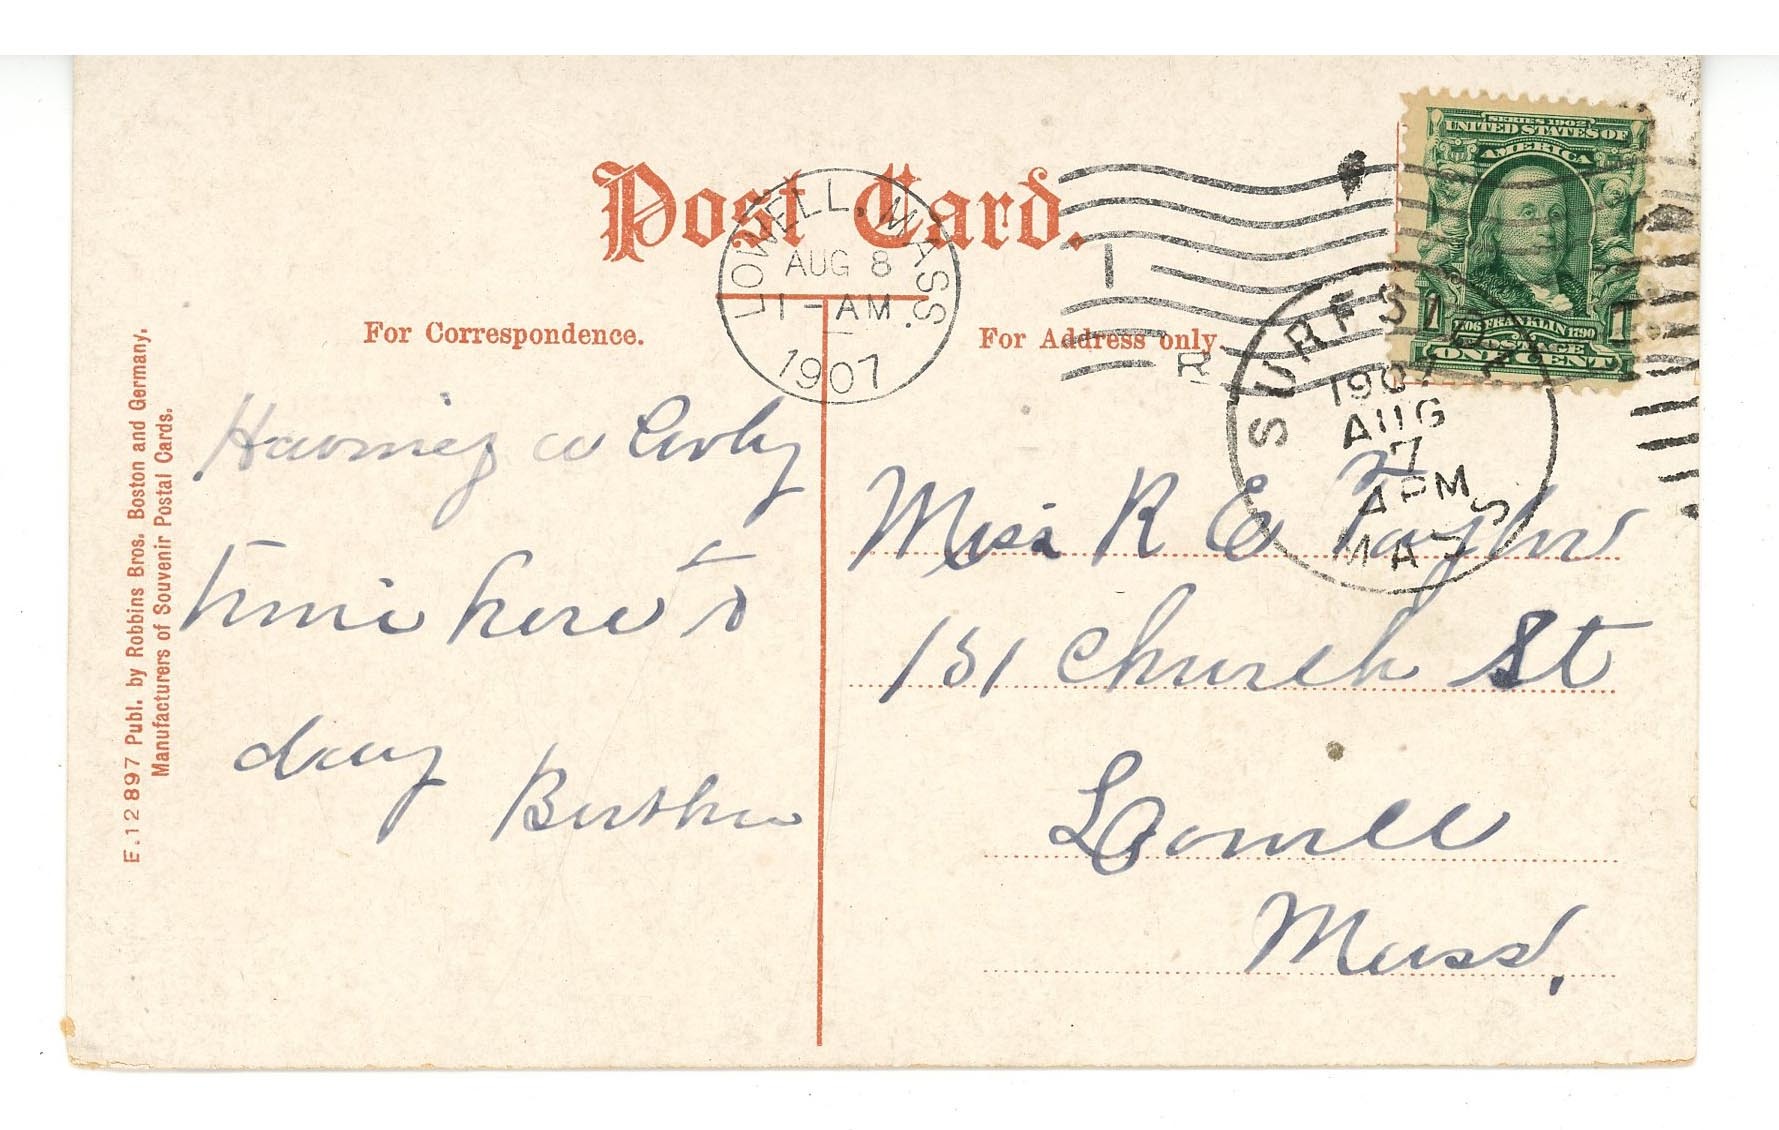 Post Card.
For Correspondence.
For Address only.
LOWELL, MASS.
AUG 8
1-AM
1907
R
SERIES 1902
UNITED STATES OF
AMERICA
1706 FRANKLIN 1790
POSTAGE
ONE CENT
SURFSIDE
1907
AUG
7
4PM
MASS
E.12897 Publ. by Robbins Bros. Boston and Germany.
Manufacturers of Souvenir Postal Cards.
Having a lovly
time here to
day
Bertha
Miss R E Taylor
151 Church St
Lowell
Mass.